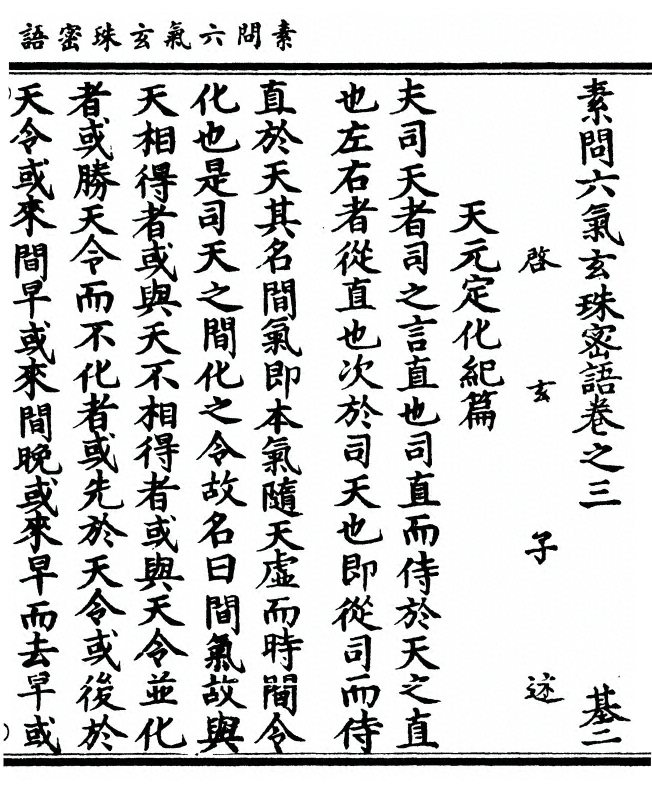 素問六氣玄珠密語
素問六氣玄珠密語卷之三 基二
啓玄子述
天元定化紀篇
夫司天者司之言直也司直而侍於天之直
也左右者從直也次於司天也即從司而侍
直於天其名間氣即本氣隨天虛而時間令
化也是司天之間化之令故名曰間氣故與
天相得者或與天不相得者或與天令並化
者或勝天令而不化者或先於天令或後於
天令或來間早或來間晚或來早而去早或